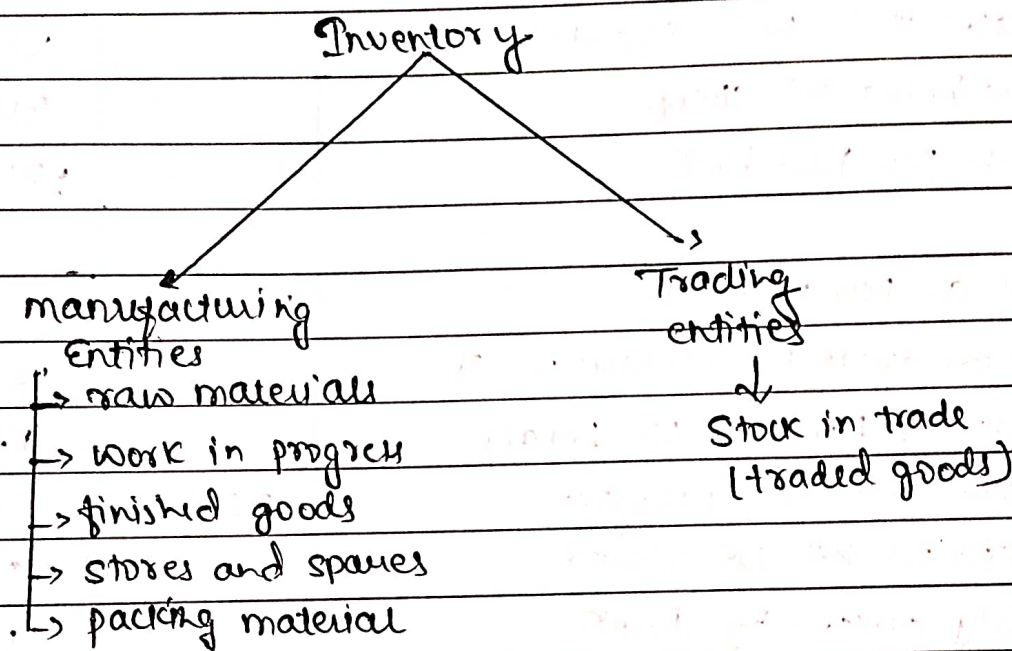 Inventory
manufacturing
Entities
raw materials
work in progress
finished goods
stores and spares
packing material
Trading
entities
Stock in trade
(traded goods)